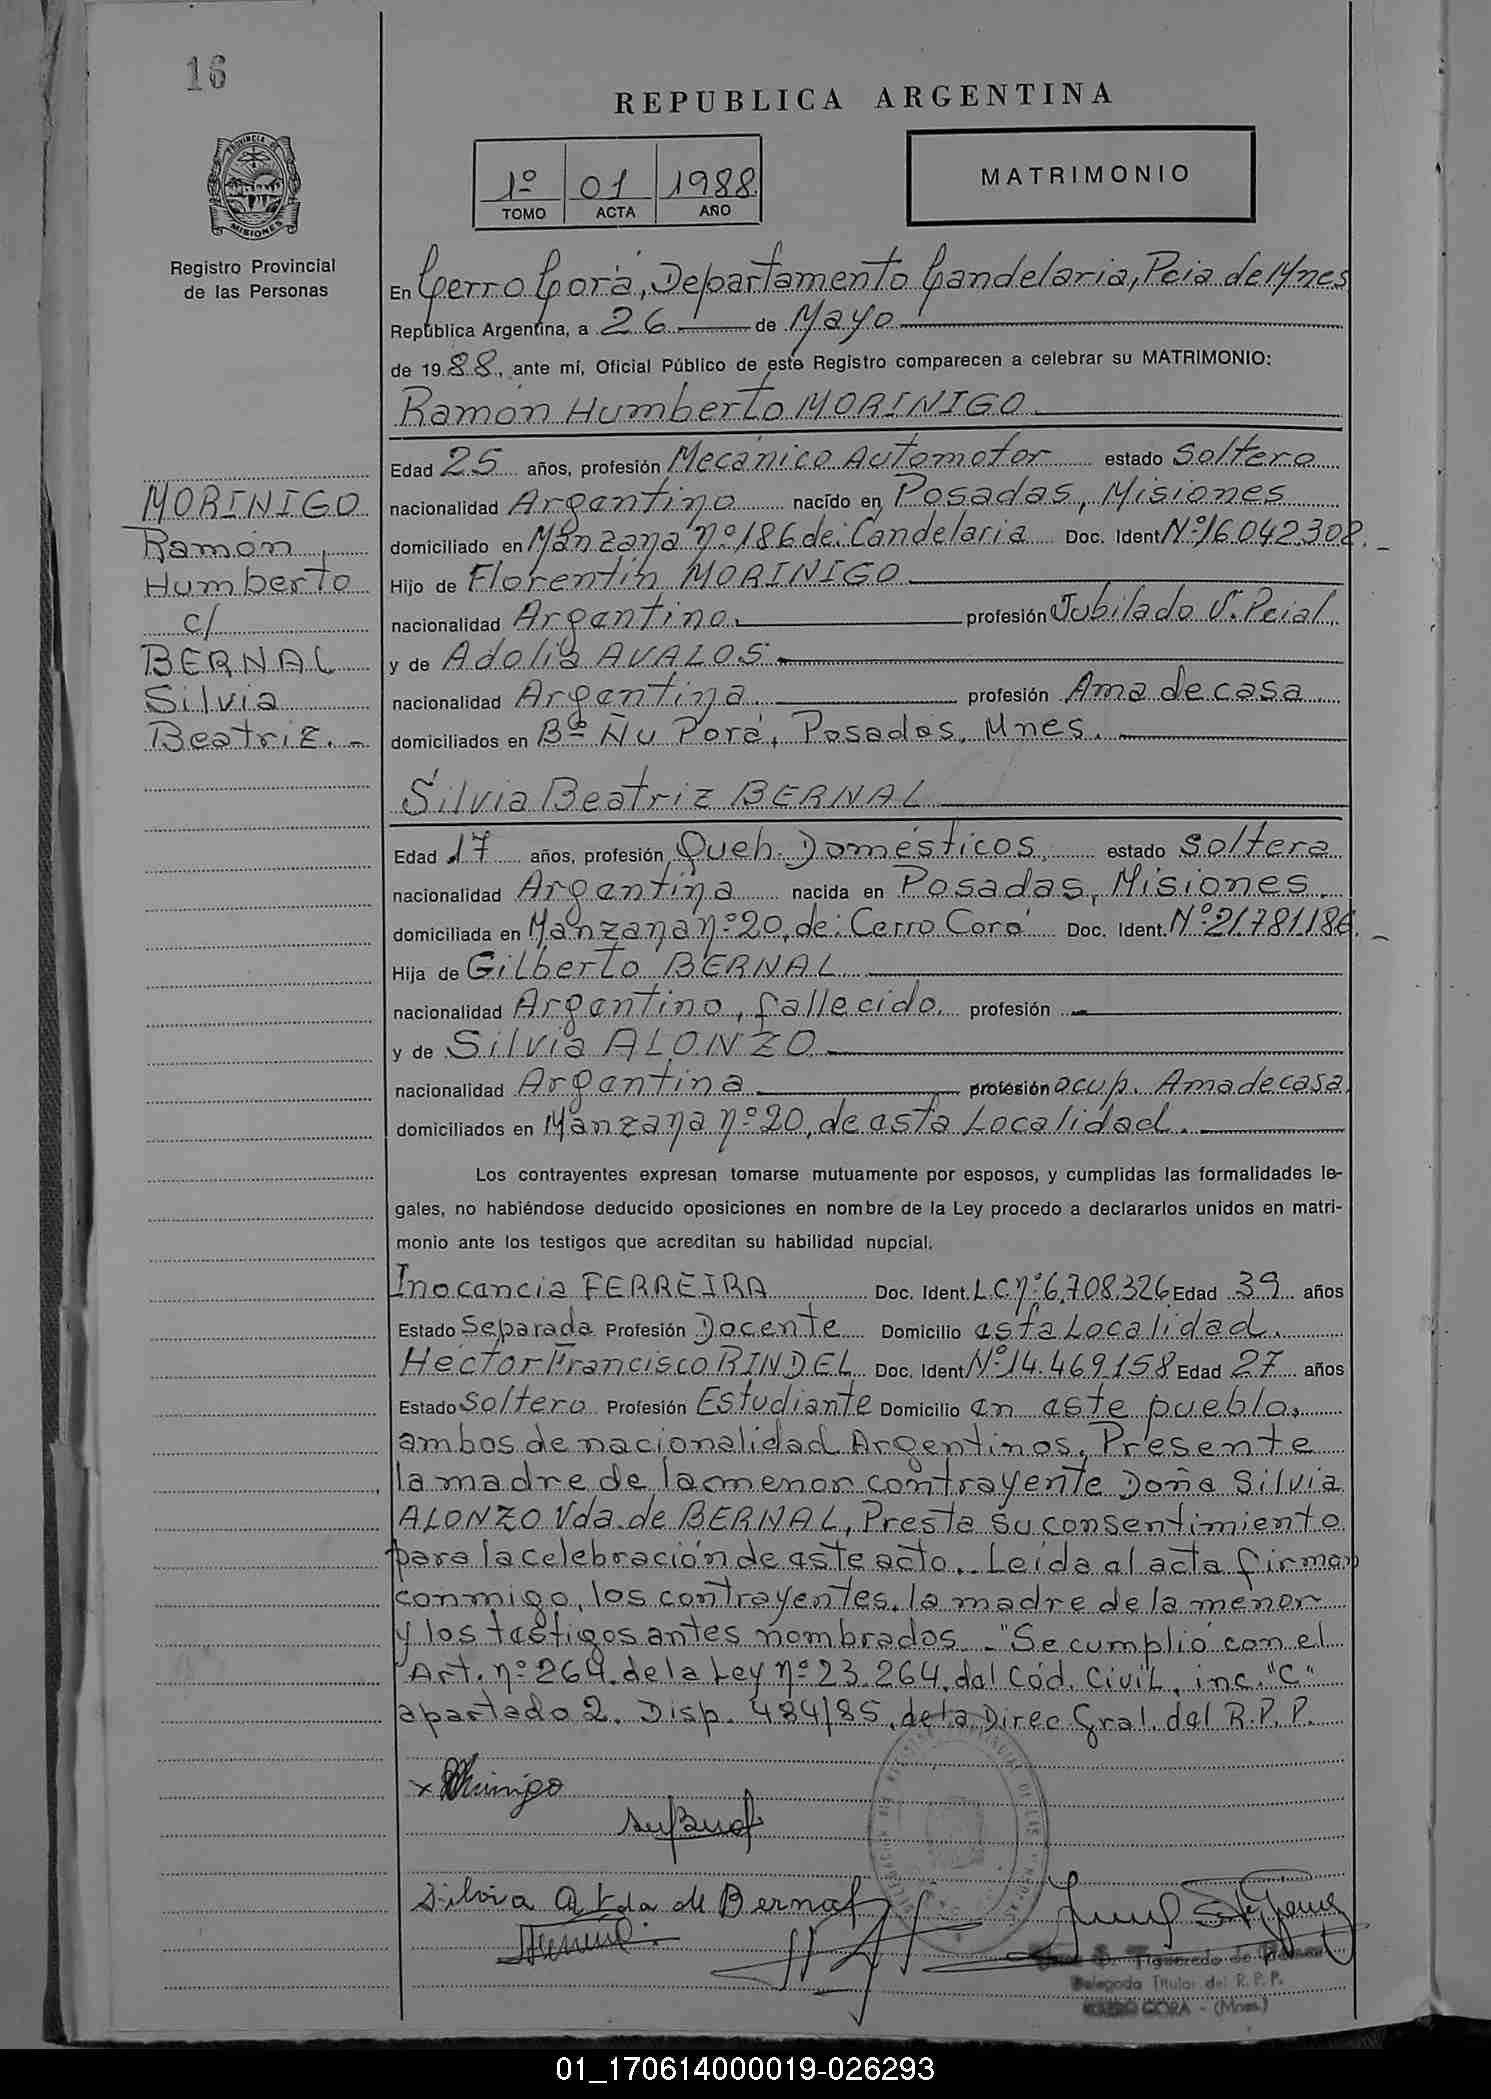 16
REPUBLICA ARGENTINA
PROVINCIA DE
MISIONES
Registro Provincial
de las Personas
1º 01 1988.
TOMO ACTA AÑO
MATRIMONIO
En Cerro Corá, Departamento Candelaria, Pcia de Mnes
República Argentina, a 26 de Mayo
de 1988, ante mí, Oficial Público de este Registro comparecen a celebrar su MATRIMONIO:
Ramón Humberto MORINIGO
Edad 25 años, profesión Mecánico Automotor estado Soltero
nacionalidad Argentino nacido en Posadas, Misiones
domiciliado en Manzana nº 186 de: Candelaria Doc. Ident Nº 16.042.302.-
Hijo de Florentin MORINIGO
nacionalidad Argentino. profesión Jubilado V. Pcial.
y de Adolia AVALOS
nacionalidad Argentina. profesión Ama de casa
domiciliados en Bº Ñu Porá, Posadas, Mnes.
MORINIGO
Ramón
Humberto
c/
BERNAL
Silvia
Beatriz.-
Silvia Beatriz BERNAL
Edad 17 años, profesión Queh. Domésticos, estado Soltera
nacionalidad Argentina nacida en Posadas, Misiones.
domiciliada en Manzana nº 20, de: Cerro Corá Doc. Ident. Nº 21.781.186.-
Hija de Gilberto BERNAL
nacionalidad Argentino, fallecido. profesión
y de Silvia ALONZO
nacionalidad Argentina profesión ocup. Ama de casa.
domiciliados en Manzana nº 20, de esta Localidad.
Los contrayentes expresan tomarse mutuamente por esposos, y cumplidas las formalidades le-
gales, no habiéndose deducido oposiciones en nombre de la Ley procedo a declararlos unidos en matri-
monio ante los testigos que acreditan su habilidad nupcial.
Inocencia FERREIRA Doc. Ident. L.C. nº 6.708.326 Edad 39 años
Estado Separada Profesión Docente Domicilio esta Localidad.
Héctor Francisco RINDEL Doc. Ident Nº 14.469.158 Edad 27 años
Estado Soltero Profesión Estudiante Domicilio en este pueblo,
ambos de nacionalidad Argentinos, Presente
la madre de la menor contrayente Doña Silvia
ALONZO Vda de BERNAL, Presta su consentimiento
para la celebración de este acto.. Leída al acta firman
conmigo, los contrayentes, la madre de la menor
y los testigos antes nombrados.-"Se cumplió con el
Art. nº 264. de la Ley nº 23.264. del Cód. Civil, inc. "C"
apartado 2. Disp. 484/85, de la Direc Gral. del R.P.P.
x Morinigo
Silvia A Vda de Bernal
Figueredo de
Delegada Titular del R.P.P.
CERRO CORA - (Mnes.)
01_170614000019-026293